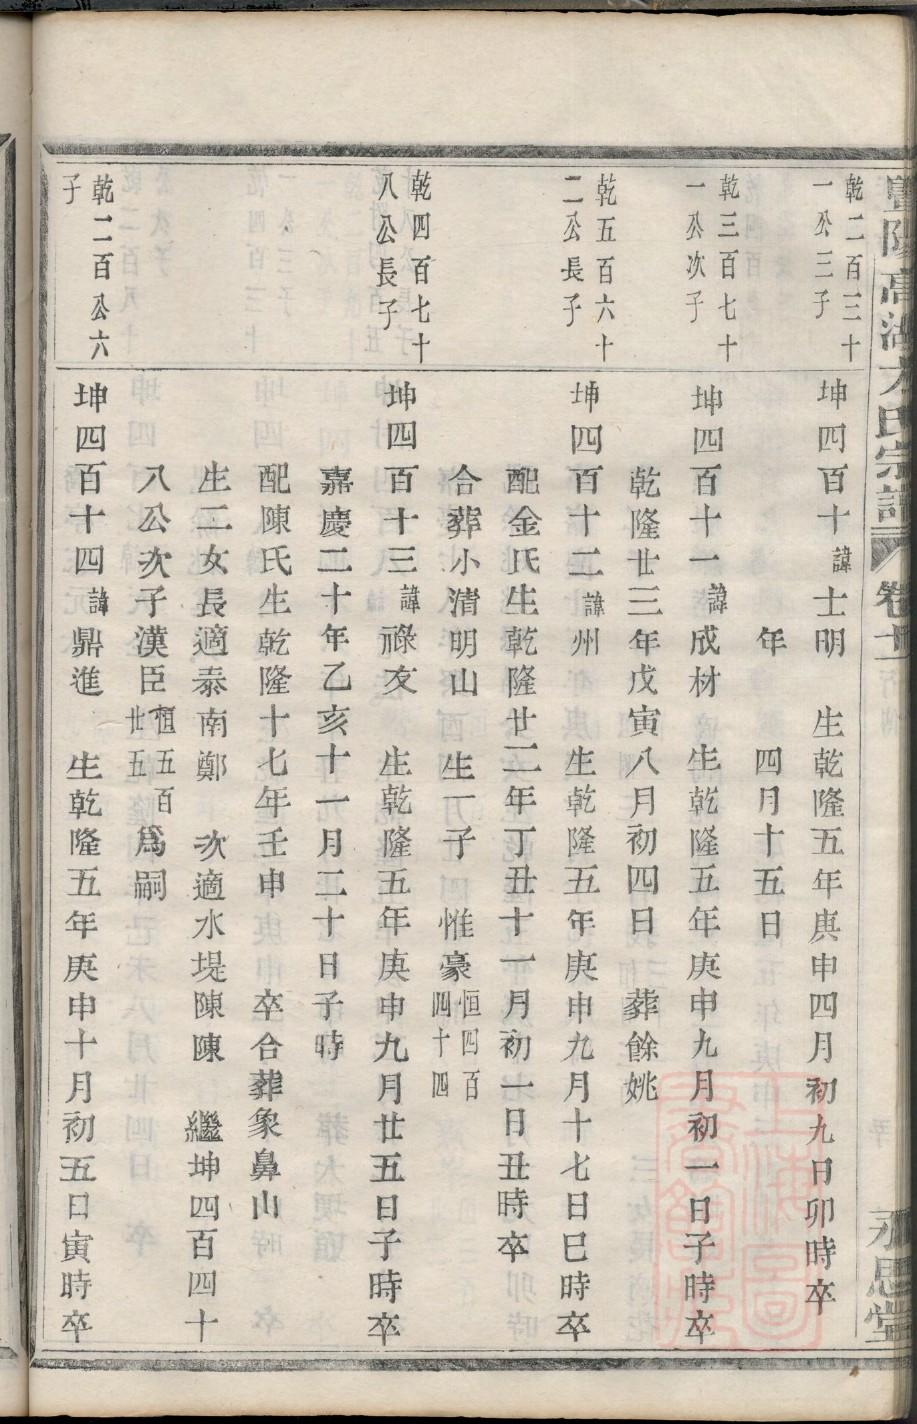 暨陽高湖方氏宗譜 卷十 永思堂
乾二百三十
一公三子
坤四百十諱士明 生乾隆五年庚申四月初九日卯時卒
年 四月十五日
乾三百七十
一公次子
坤四百十一諱成材 生乾隆五年庚申九月初一日子時卒
乾隆廿三年戊寅八月初四日 葬餘姚
乾五百六十
二公長子
坤四百十二諱州 生乾隆五年庚申九月十七日巳時卒
配金氏生乾隆廿二年丁丑十一月初一日丑時卒
合葬小清明山 生一子 惟豪恒四百四十四
乾四百七十
八公長子
坤四百十三諱祿友 生乾隆五年庚申九月廿五日子時卒
嘉慶二十年乙亥十一月二十日子時
配陳氏生乾隆十七年壬申 卒合葬象鼻山
生二女長適泰南鄭 次適水堤陳陳 繼坤四百四十
八公次子漢臣恒五百卅五為嗣
乾二百公六
子
坤四百十四諱鼎進 生乾隆五年庚申十月初五日寅時卒